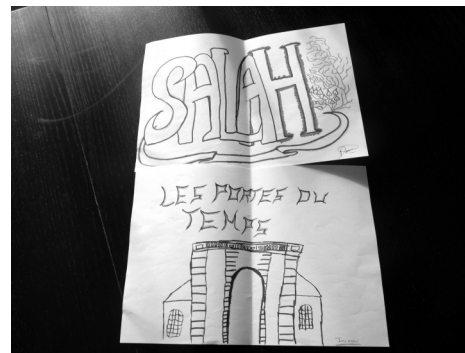 SALAH
LES PORTES DU
TEMPS